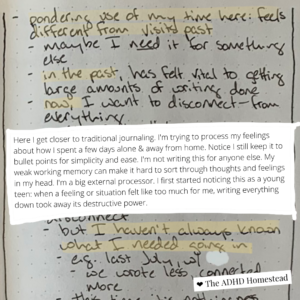 - pondering use of my time here: feels
different from visits past
- maybe I need it for something
else
- in the past, has felt vital to getting
large amounts of writing done
- now, I want to disconnect - from
everything
Here I get closer to traditional journaling. I'm trying to process my feelings
about how I spent a few days alone & away from home. Notice I still keep it to
bullet points for simplicity and ease. I'm not writing this for anyone else. My
weak working memory can make it hard to sort through thoughts and feelings
in my head. I'm a big external processor. I first started noticing this as a young
teen: when a feeling or situation felt like too much for me, writing everything
down took away its destructive power.
disconnect
- but I haven't always known
what I needed going in
- eg. last July, w/
we wrote less, connected
more
- this time
❤ The ADHD Homestead